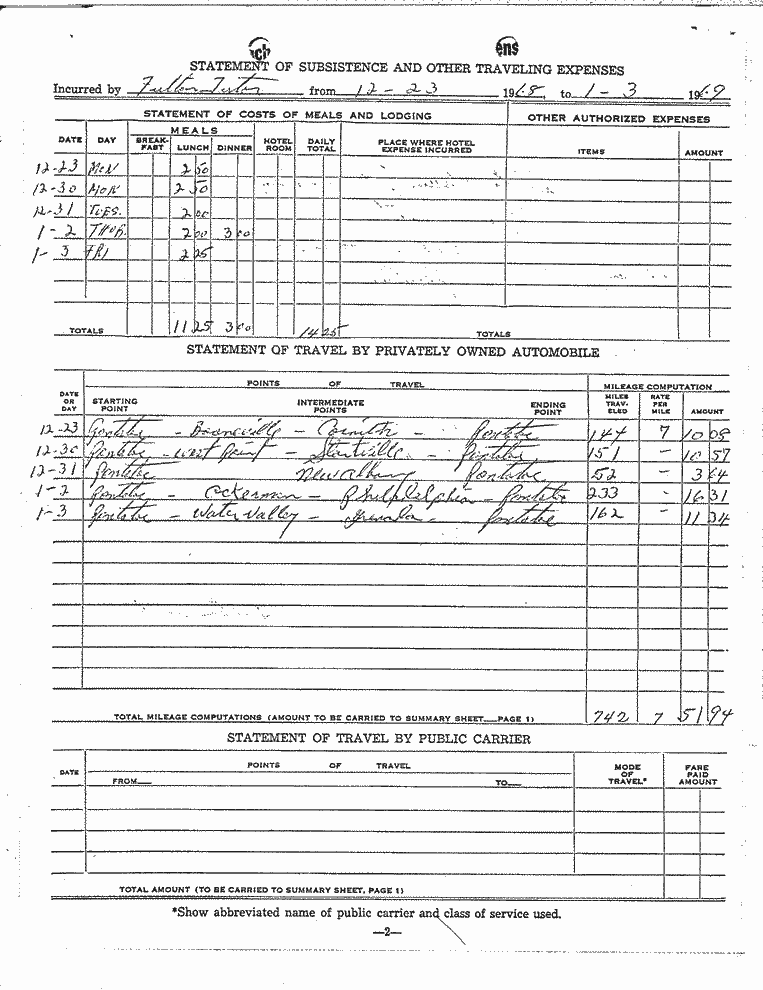 ens
STATEMENT OF SUBSISTENCE AND OTHER TRAVELING EXPENSES
Incurred by Fulton Tutor from 12-23 1968, to 1-3 1969
STATEMENT OF COSTS OF MEALS AND LODGING OTHER AUTHORIZED EXPENSES
DATE DAY MEALS BREAK-FAST LUNCH DINNER HOTEL ROOM DAILY TOTAL PLACE WHERE HOTEL EXPENSE INCURRED ITEMS AMOUNT
12-23 MON 2 50
12-30 MON 2 50
12-31 TUES. 2 00
1-2 THUR. 2 00 3 00
1-3 FRI 2 25
TOTALS 11 25 3 00 14 25 TOTALS
STATEMENT OF TRAVEL BY PRIVATELY OWNED AUTOMOBILE
DATE OR DAY POINTS OF TRAVEL MILEAGE COMPUTATION
STARTING POINT INTERMEDIATE POINTS ENDING POINT MILES TRAV-ELED RATE PER MILE AMOUNT
12-23 Pontotoc - Booneville - Corinth - Pontotoc 144 7 10 08
12-30 Pontotoc - West Point - Starkville - Pontotoc 151 - 10 57
12-31 Pontotoc New Albany Pontotoc 52 - 3 64
1-2 Pontotoc - Ackerman - Philpdelphia - Pontotoc 233 - 16 31
1-3 Pontotoc - Water Valley - Grenada - Pontotoc 162 - 11 34
TOTAL MILEAGE COMPUTATIONS (AMOUNT TO BE CARRIED TO SUMMARY SHEET—PAGE 1) 742 7 51 94
STATEMENT OF TRAVEL BY PUBLIC CARRIER
DATE POINTS OF TRAVEL MODE OF TRAVEL* FARE PAID AMOUNT
FROM— TO—
TOTAL AMOUNT (TO BE CARRIED TO SUMMARY SHEET, PAGE 1)
*Show abbreviated name of public carrier and class of service used.
—2—